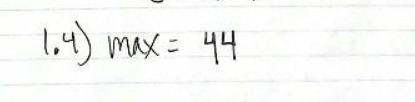 1.4) max = 44